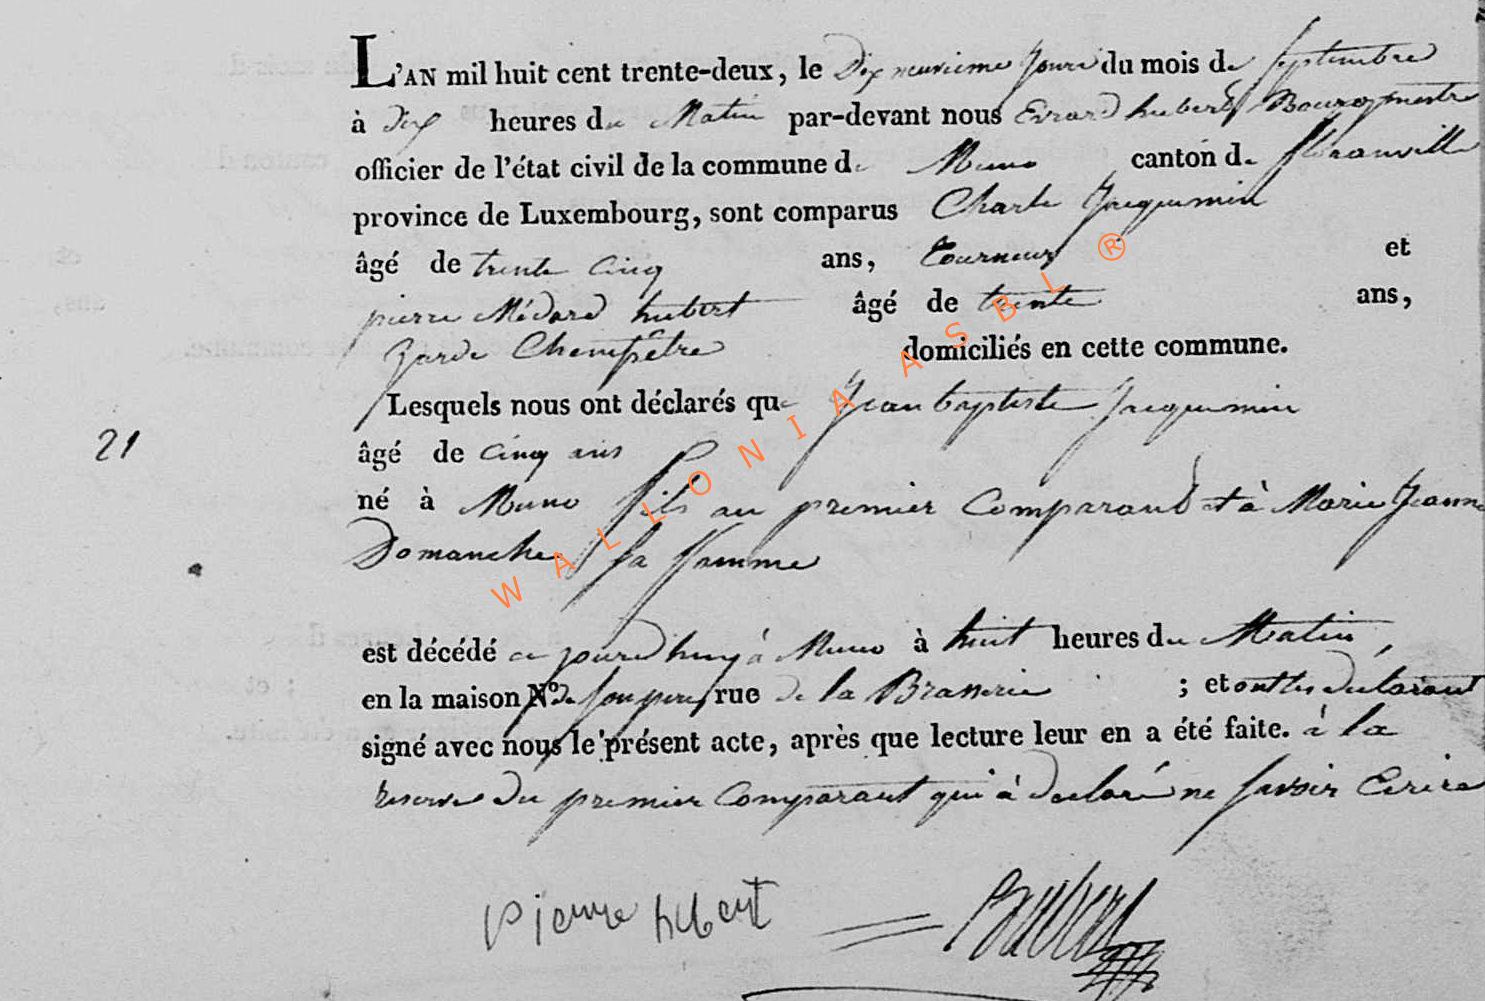 L'AN mil huit cent trente-deux, le Dix neuvieme Jour du mois de Septembre
à dix heures du Matin par-devant nous Evrard hubert Bourgmestre
officier de l'état civil de la commune de Muno canton de floranville
province de Luxembourg, sont comparus Charle Jacquemin
âgé de trente cinq ans, tourneur et
pierre Médard hubert âgé de trente ans,
garde Champêtre domiciliés en cette commune.
Lesquels nous ont déclarés que Jean baptiste Jacquemin
21
âgé de cinq ans
né à Muno fils au premier Comparant et à Marie Jeanne
Domanche sa famme
est décédé ce jourd'huy à Muno à huit heures du Matin,
en la maison N° de son pere, rue de la Brasserie ; et ont les déclarant
signé avec nous le présent acte, après que lecture leur en a été faite. à la
reserve du premier Comparant qui à declaré ne savoir Ecrire
pierre hubert
WALLONIA ASBL ®